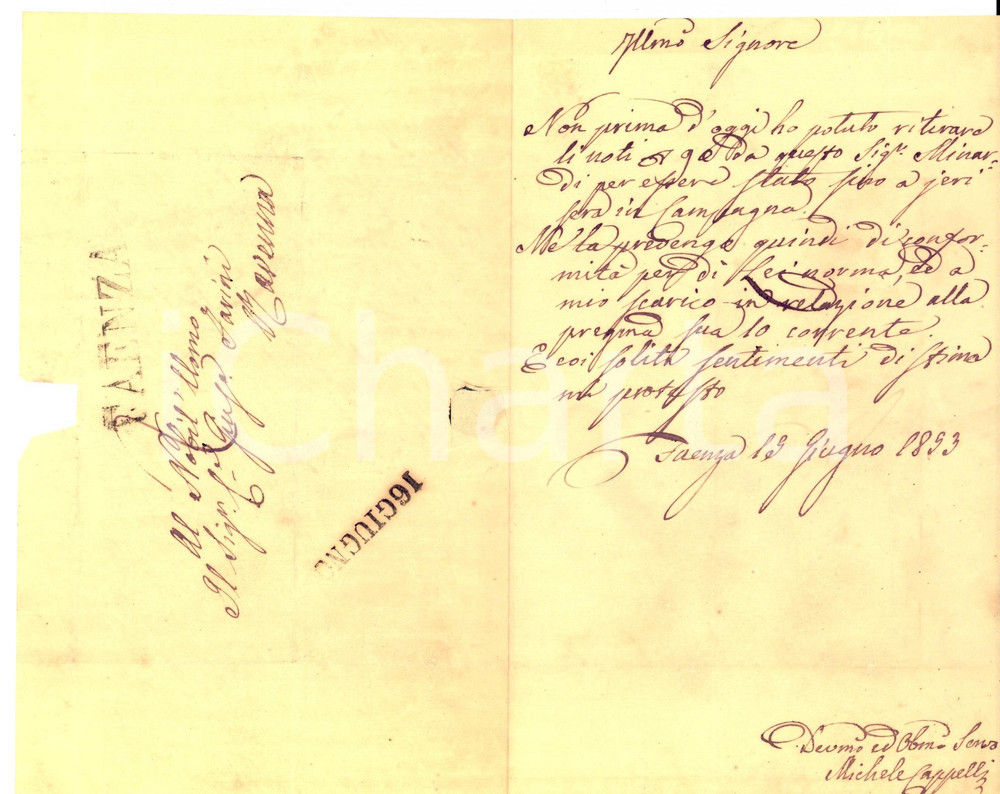 FAENZA
Al Nobil Uomo
Il Sigr. Cte. Savini
Ravenna
16 GIUGNO
iCharta
Illmo Signore
Non prima d'oggi ho potuto ritirare
li noti da questo Sigr. Minar-
di per essere stato sino a jeri
sera in Campagna.
Me la predenga quindi di confor-
mità per di Lei norma, ed a
mio scarico in relazione alla
pregma sua lo corrente
E coi soliti sentimenti di stima
mi protesto
Faenza 15 Giugno 1853
Devmo ed Obbmo Serva
Michele Cappelli